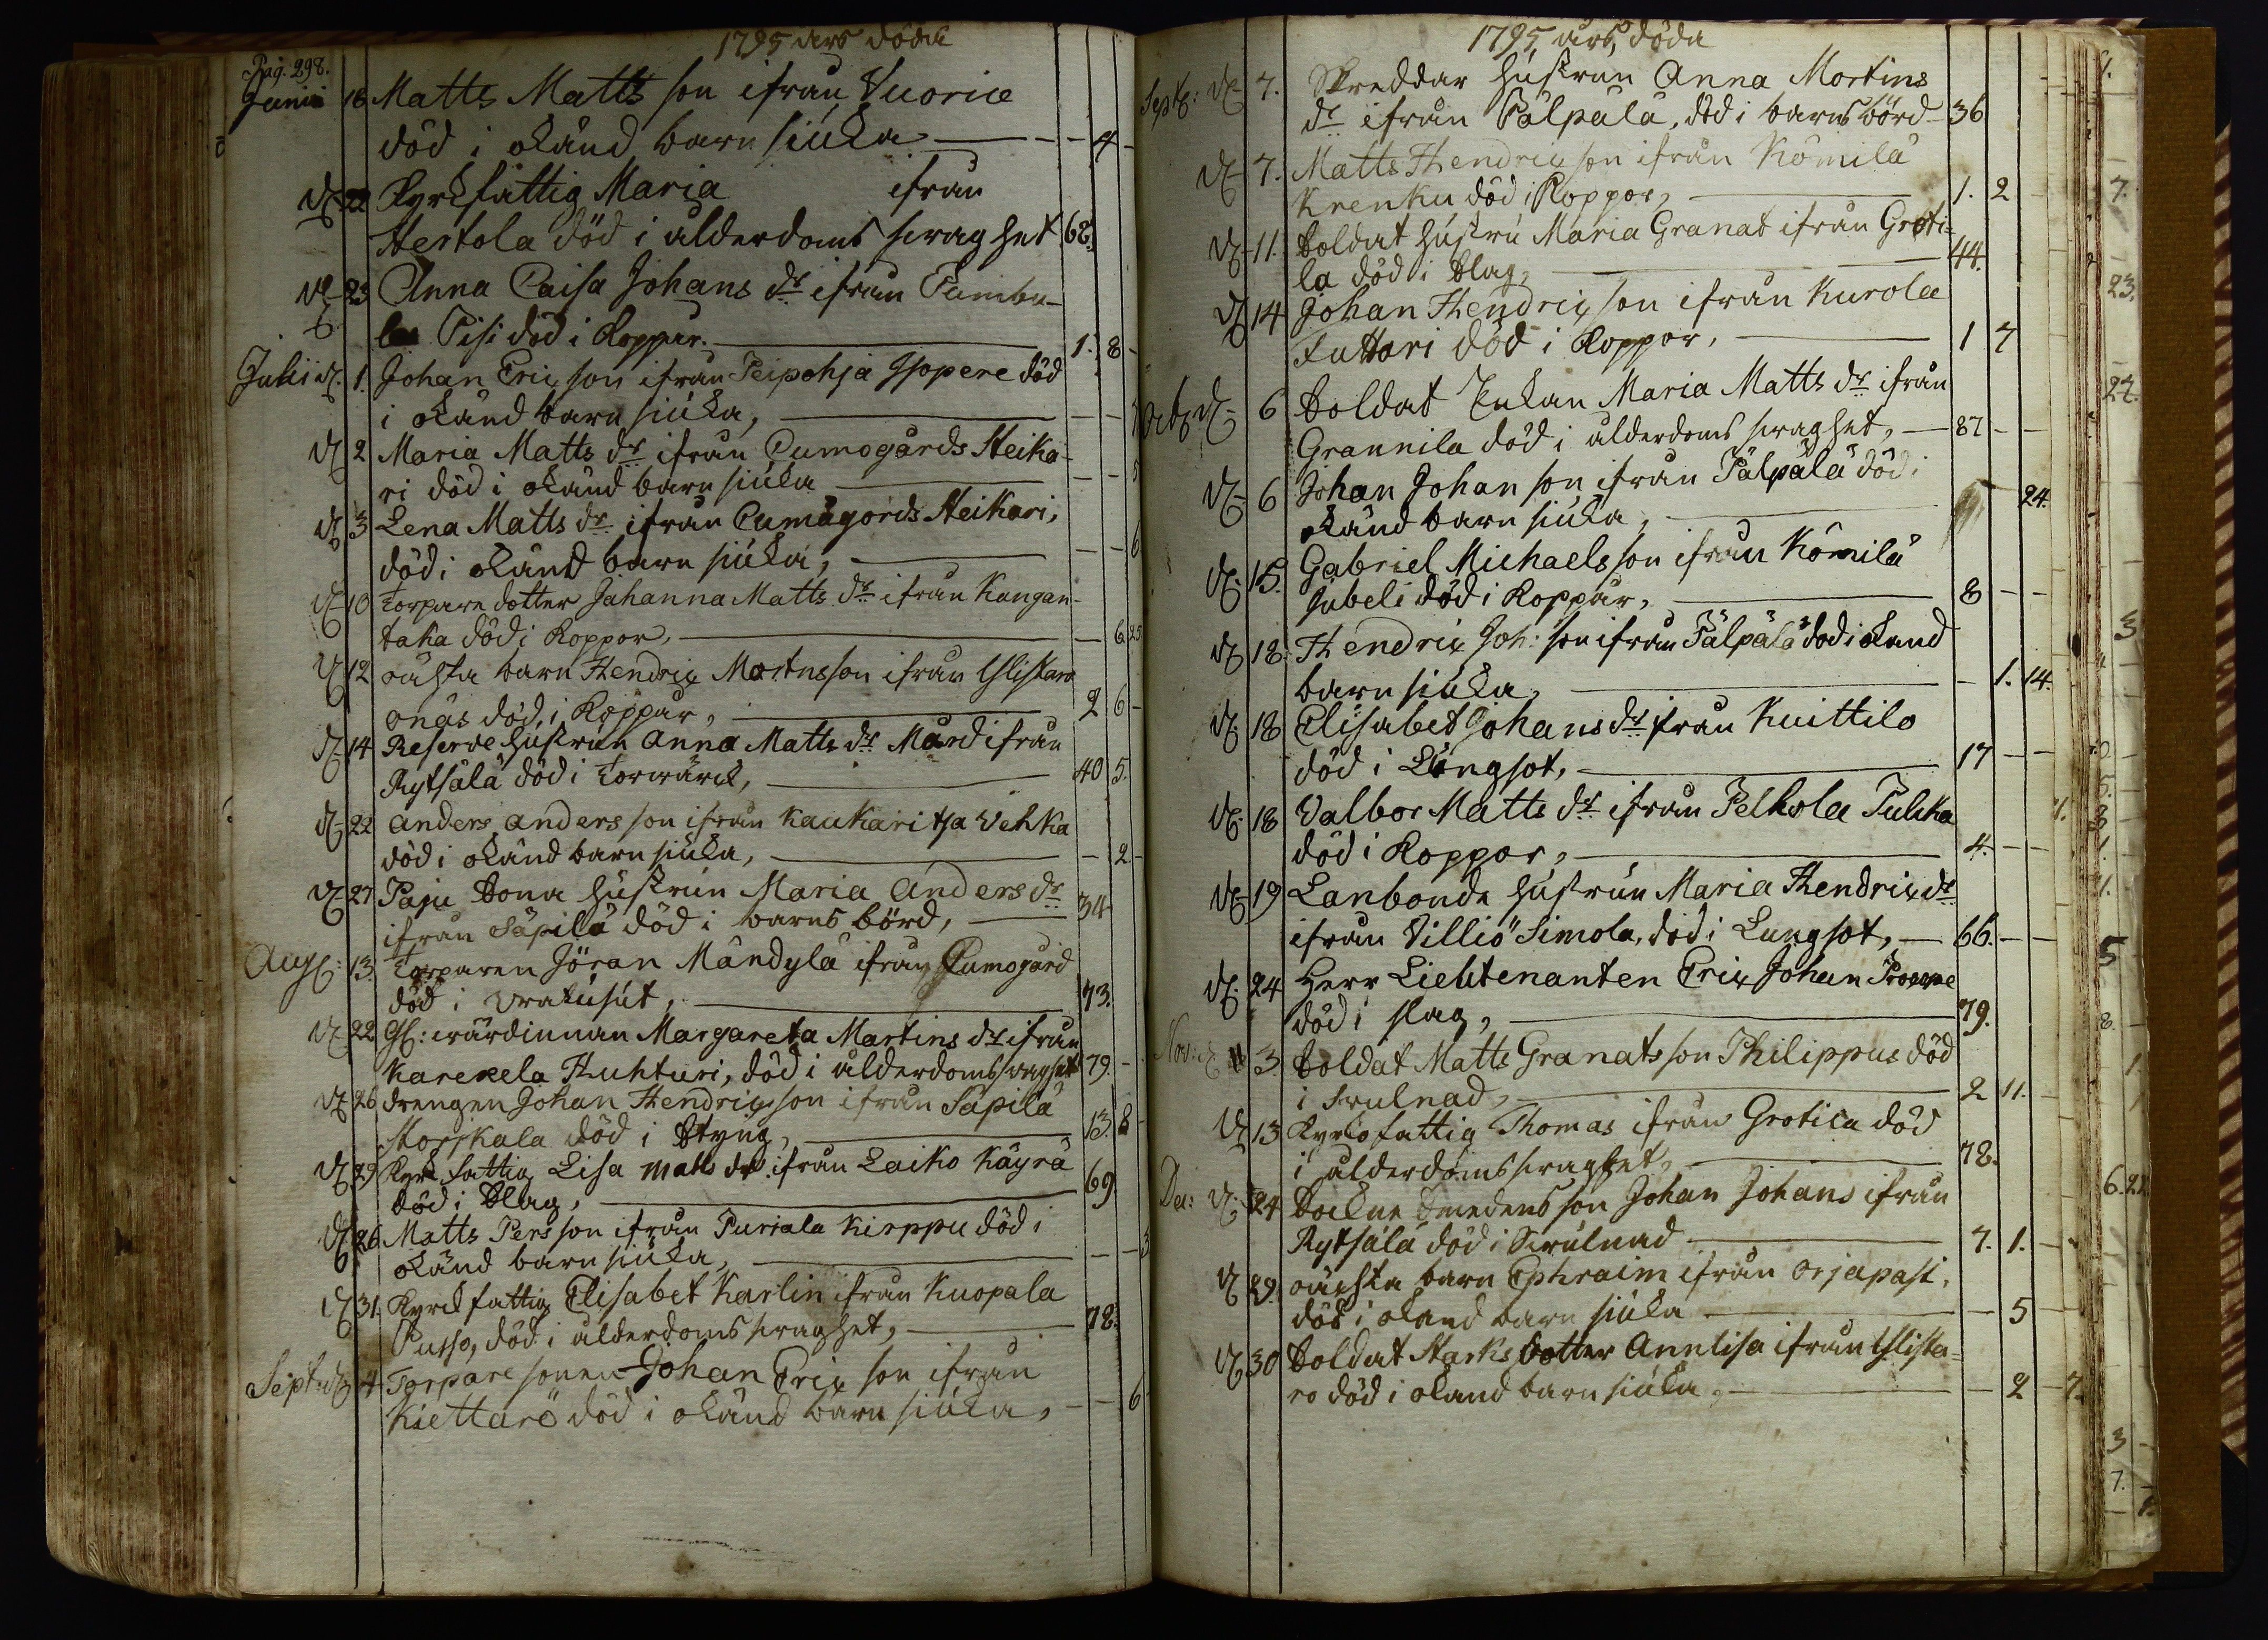 1795 års döda
Pag. 298.
Junii 18 Matts Matts son ifrån Vuorio
död i okänd barn siúka — 4 -
d 22 Kyrkfattig Maria ifrån
Hertola död i ålderdoms swaghet 62.
d 23 Anna Caisa Johans dr ifrån Pambu-
la Pisi död i Koppur. — 1. 8 -
Julii d. 1. Johan Eric son ifrån Peipohja Isopere död
i okänd barn siúka, — - -
d 2 Maria Matts dr ifrån Cumogårds Heika-
ri död i okänd barn siúka — - - 5
d 3 Lena Matts dr ifrån Cumågords Heikari,
död i okänd barn siúka, — - - 6
d 10 Torpare dotter Jahanna Matts dr ifrån Kangan-
taka död i Koppor, — - 6 25
d 12 oäkta barn Hendric Mortnsson ifrån Ylistaro
onäs död, i Koppur, — 2 6 -
d 14 Reserve hústrún Anna Matts dr Mård ifrån
Rytsälä död i Torwärk, — 40 5.
d 22 Anders Anders son ifrån Kaukaritsa Vehka
död i okänd barn siúka, — - 2 -
d 27 Paju bona hústrún Maria Anders dr 34
ifrån Säpilä död i barns börd, —
Aug: 13. Torparen Jöran Mändylä ifrån Cumogård
död i , — 73.
d 22 Gl: wärdinnan Margareta Martins dr ifrån
Karekela Huhturi, död i ålderdomsswaghet 79. -
d 26 drengen Johan Hendrix son ifrån Säpilä
Storskala död i Styng, — 13. 8 -
d 29 Kyrk fattig Lisa Matts dr. ifrån Laiko Käyrä 69
död i Slag, —
d 26 Matts Pers son ifrån Purjala Kirppu död i
okänd barn siúka, — - - 3
d 31. Kyrck fattig Elisabet Karlin ifrån Kuopala
Pusso, död i ålderdoms swaghet, — 78.
Sept: d 4 Torpare sonen Johan Eric son ifrån
Kiettarö död i okänd barn siúka, - - 6
1795 års döda
Sept: d 7. Skreddar hústrún Anna Mortins
dr ifrån Pälpälä, död i barns börd - 36
d 7. Matts Hendrix son ifrån Kömilä
Krenku död i Koppor, — 1. 2
d 11. Soldat hústrú Maria Granat ifrån Groti-
la död i Slag, — 44.
d 14 Johan Hendrix son ifrån Kurola
Futtari död i Koppor, — 1 7
Octb d 6 Soldat Enkan Maria Matts dr ifrån
Grannila död i ålderdoms swaghet, — 87 - -
d 6 Johan Johan son ifrån Pälpälä död i
okänd barn siúka, — - 24.
d. 15. Gabriel Michaels son ifrån Kömilä
Jubeli död i Koppur, — 8 - -
d 18. Hendrix Joh: son ifrån Pälpälä död i okand
barn siúka, — - 1. 14.
d. 18 Elisabet Johans dr ifrån Kuittilo
död i Lúngsot, — 17 - -
d. 18 Valbor Matts dr ifrån Pelhola Pulska
död i Koppor, — 4. - -
d 19 Lanbonde hústrún Maria Hendrix dr
ifrån Villiö Simola, död i Lungsot, — 66. - -
d. 24 Herr Lieutenanten Eric Johan
död i slag, — 79.
Nov: d 3. Soldat Matts Granats son Philippus död
i Swulnad, — 2 11. -
d 13 Kyrko fattig Thomas ifrån Grotila död
i ålderdoms swaghet, — 78.
Dec: d. 24 Sockne Smedens son Johan Johans ifrån
Rytsälä död i Swúlnad — 7. 1. -
d 29. oächta barn Ephraim ifrån Orjapasi,
död i okand barn siúka — - 5 -
d 30 Soldat Starks Dotter Annlisa ifrån Ylista-
ro död i okand barn siúka, — - 2 - 7.